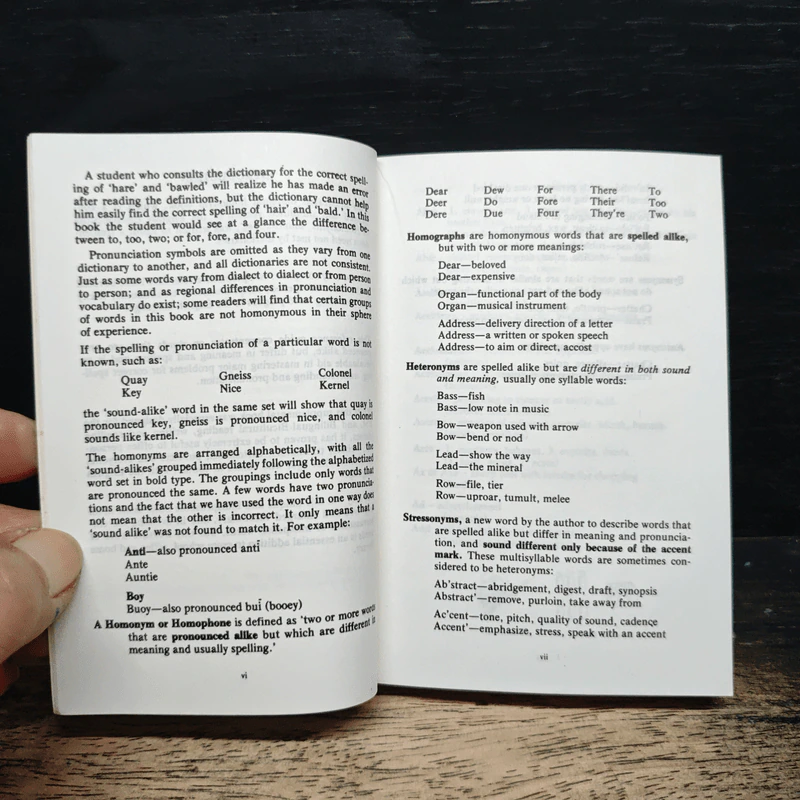 A student who consults the dictionary for the correct spell-
ing of 'hare' and 'bawled' will realize he has made an error
after reading the definitions, but the dictionary cannot help
him easily find the correct spelling of 'hair' and 'bald.' In this
book the student would see at a glance the difference be-
tween to, too, two; or for, fore, and four.
Pronunciation symbols are omitted as they vary from one
dictionary to another, and all dictionaries are not consistent.
Just as some words vary from dialect to dialect or from person
to person; and as regional differences in pronunciation and
vocabulary do exist; some readers will find that certain groups
of words in this book are not homonymous in their sphere
of experience.
If the spelling or pronunciation of a particular word is not
known, such as:
Quay Gneiss Colonel
Key Nice Kernel
the 'sound-alike' word in the same set will show that quay is
pronounced key, gneiss is pronounced nice, and colonel
sounds like kernel.
The homonyms are arranged alphabetically, with all the
'sound-alikes' grouped immediately following the alphabetized
word set in bold type. The groupings include only words that
are pronounced the same. A few words have two pronuncia-
tions and the fact that we have used the word in one way does
not mean that the other is incorrect. It only means that a
'sound alike' was not found to match it. For example:
Anti—also pronounced antī
Ante
Auntie
Boy
Buoy—also pronounced buī (booey)
A Homonym or Homophone is defined as 'two or more words
that are pronounced alike but which are different in
meaning and usually spelling.'
vi
Dear Dew For There To
Deer Do Fore Their Too
Dere Due Four They're Two
Homographs are homonymous words that are spelled alike,
but with two or more meanings:
Dear—beloved
Dear—expensive
Organ—functional part of the body
Organ—musical instrument
Address—delivery direction of a letter
Address—a written or spoken speech
Address—to aim or direct, accost
Heteronyms are spelled alike but are different in both sound
and meaning, usually one syllable words:
Bass—fish
Bass—low note in music
Bow—weapon used with arrow
Bow—bend or nod
Lead—show the way
Lead—the mineral
Row—file, tier
Row—uproar, tumult, melee
Stressonyms, a new word by the author to describe words that
are spelled alike but differ in meaning and pronuncia-
tion, and sound different only because of the accent
mark. These multisyllable words are sometimes con-
sidered to be heteronyms:
Ab'stract—abridgement, digest, draft, synopsis
Abstract'—remove, purloin, take away from
Ac'cent—tone, pitch, quality of sound, cadence
Accent'—emphasize, stress, speak with an accent
vii